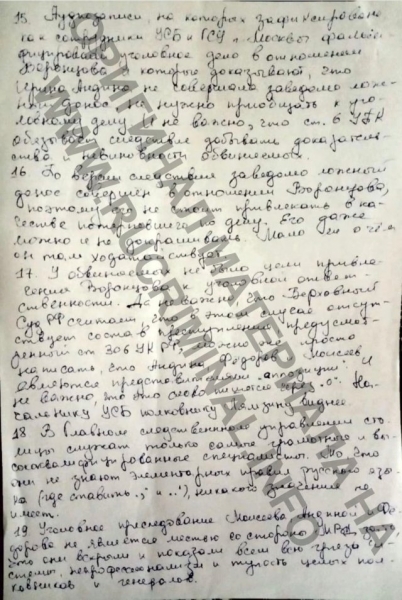 15. Аудиозаписи, на которых зафиксировано
как сотрудники УСБ и ГСУ г. Москвы фальси-
фицировали уголовное дело в отношении
Воронцова и которые доказывают, что
Ирина Андина не совершала заведомо лож-
ный донос не нужно приобщать к уго-
ловному делу. И не важно, что ст. 6 УПК
обязывает следствие добывать доказательс-
тва невиновности обвиняемых.
16. По версии следствия заведомо ложный
донос совершен в отношении Воронцова,
поэтому его не стоит привлекать в ка-
честве потерпевшего по делу. Его даже
можно и не допрашивать. Мало ли о чем
он там ходатайствует.
17. У обвиняемой не было цели привле-
чения Воронцова к уголовной ответ-
ственности. И не важно, что Верховный
Суд РФ считает, что в этом случае отсутс-
твует состав преступления предусмот-
ренный ст. 306 УК РФ, можно же просто
написать, что Андина, Федоров и Моисеев
являются представителями "аппозиции". И
не важно, что это слово пишется через "о". На-
чальнику УСБ полковнику виднее.
18. В Главном следственном управлении сто-
лицы служат только самые грамотные и вы-
сококвалифицированные специалисты. То, что
они не знают элементарных правил русского язы-
ка (где ставить "," и "."), никакого значения не
имеет.
19. Уголовное преследование Моисеева, Андиной и Фе-
дорова не является местью со стороны МВД за то,
что они вскрыли и показали всем всю грязь си-
стемы, непрофессионализм и тупость целых пол-
ковников и генералов.
ОРИГИНАЛ МАТЕРИАЛА НА
WWW.RUCRIMINAL.INFO